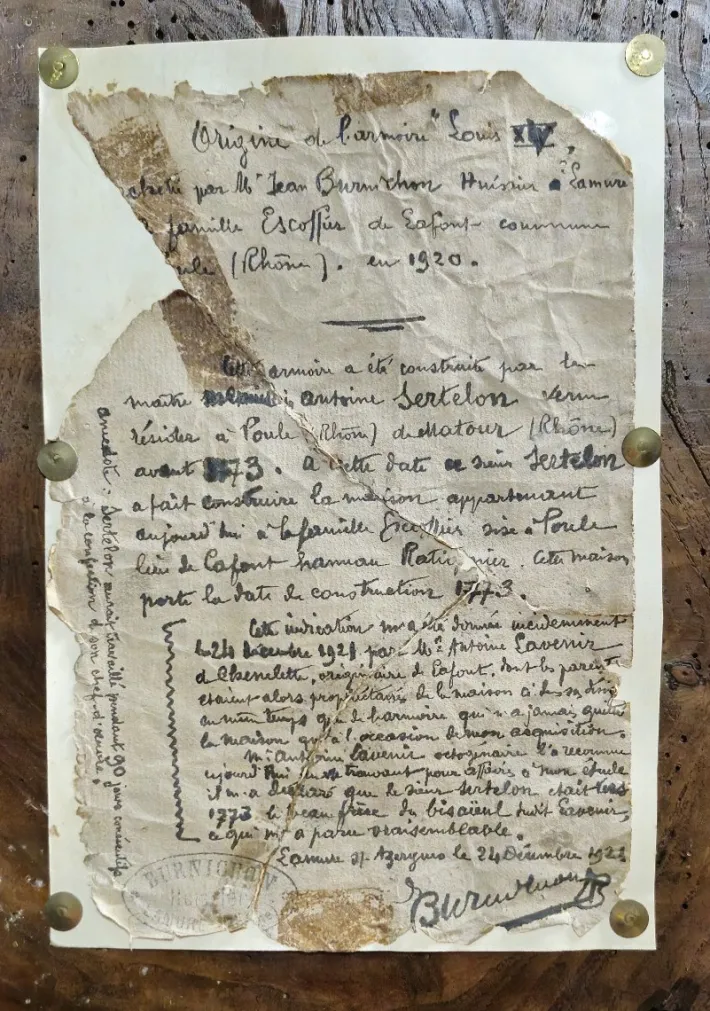 Origine de l'armoire "Louis XIV",
acheté par Mr Jean Burnichon Huissier à Lamure
famille Escoffier de Lafont commune
(Rhône). en 1920.
Cette armoire a été construite par le
maître antoine Sertelon venu
résider à Poule (Rhône) de Matour (Rhône)
avant 1773. a cette date ce sieur Sertelon
a fait construire la maison appartenant
aujourd'hui à la famille Escoffier sise à Poule
lieu de Lafont hameau Cette maison
porte la date de construction 1773.
Cette indication m'a été donnée incidemment
le 24 décembre 1921 par Mr Antoine Lavenir
d Chenelette, originaire de Lafont, dont les parents
étaient alors propriétaires de la maison
en même temps que de l'armoire qui n'a jamais quitté
la maison qu'à l'occasion de mon acquisition.
Mr Antoine Lavenir octogénaire l'a reconnue
aujourd'hui se trouvant pour affaires à mon étude
il m'a déclaré que le sieur Sertelon était
1773 le beau frère du bisaïeul dudit Lavenir,
ce qui m'a paru vraisemblable.
Lamure s/ Azergues le 24 Décembre 1921
Burnichon
anecdote: Sertelon aurait travaillé pendant 90 jours consécutifs
à la confection d son chef-d'œuvre.
BURNICHON